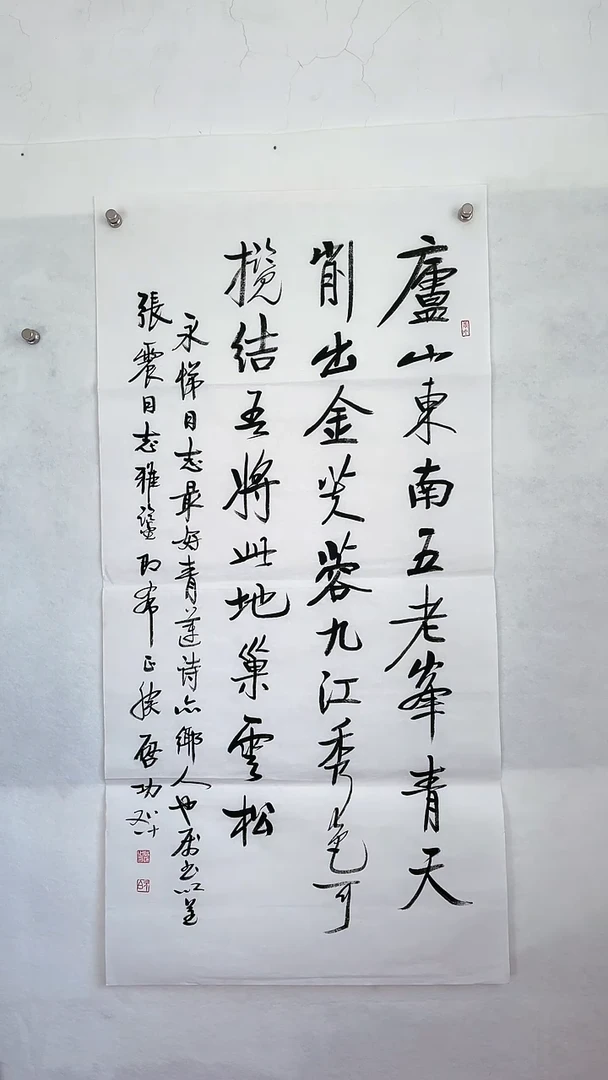 廬山東南五老峯青天
削出金芙蓉九江秀色可
攬結吾將此地巢雲松
永悌同志最好青蓮詩亦鄉人也属书以呈
張震同志雅鑒即希正腕啓功又八十